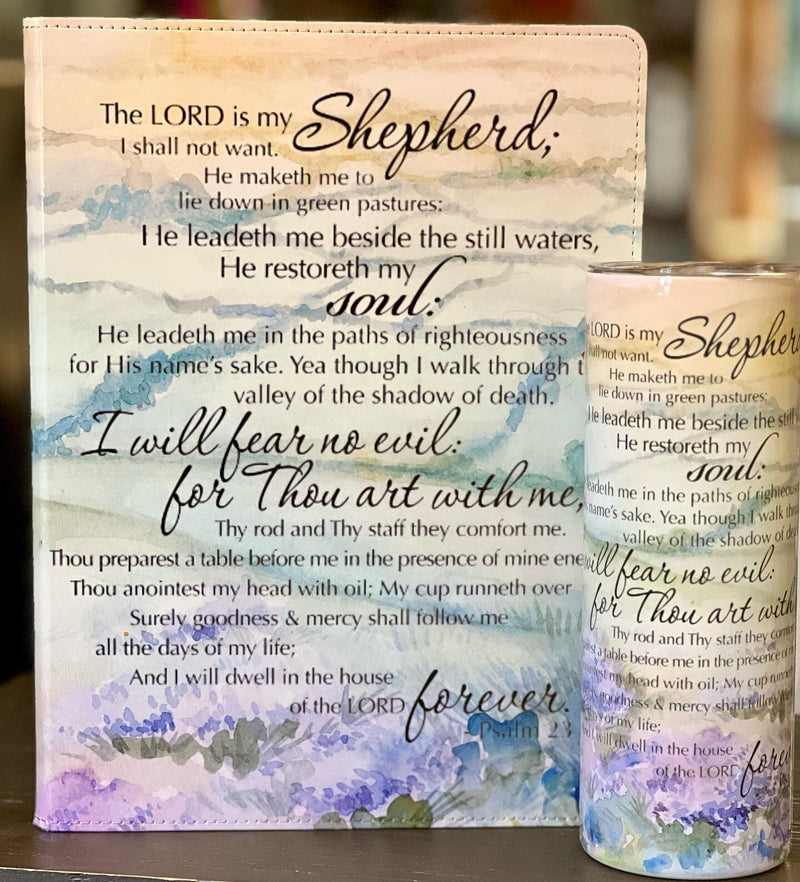 The LORD is my Shepherd;
I shall not want.
He maketh me to
lie down in green pastures:
He leadeth me beside the still waters,
He restoreth my
soul:
He leadeth me in the paths of righteousness
for His name's sake. Yea though I walk through t
valley of the shadow of death.
I will fear no evil:
for Thou art with me,
Thy rod and Thy staff they comfort me.
Thou preparest a table before me in the presence of mine ene
Thou anointest my head with oil; My cup runneth over
Surely goodness & mercy shall follow me
all the days of my life;
And I will dwell in the house
of the LORD forever.
- Psalm 23
LORD is my Shepher
shall not want.
He maketh me to
lie down in green pastures:
He leadeth me beside the still
He restoreth my
soul:
eadeth me in the paths of righteous
name's sake. Yea though I walk thro
valley of the shadow of dea
will fear no evil:
for Thou art with
Thy rod and Thy staff they comfor
a table before me in the presence of m
my head with oil; My cup runne
goodness & mercy shall follow
of my life;
I will dwell in the house
of the LORD forev